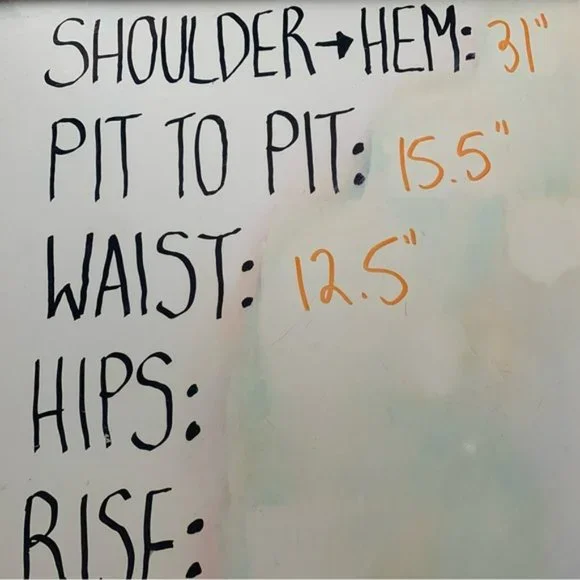 SHOULDER→HEM: 31"
PIT TO PIT: 15.5"
WAIST: 12.5"
HIPS:
RISE: